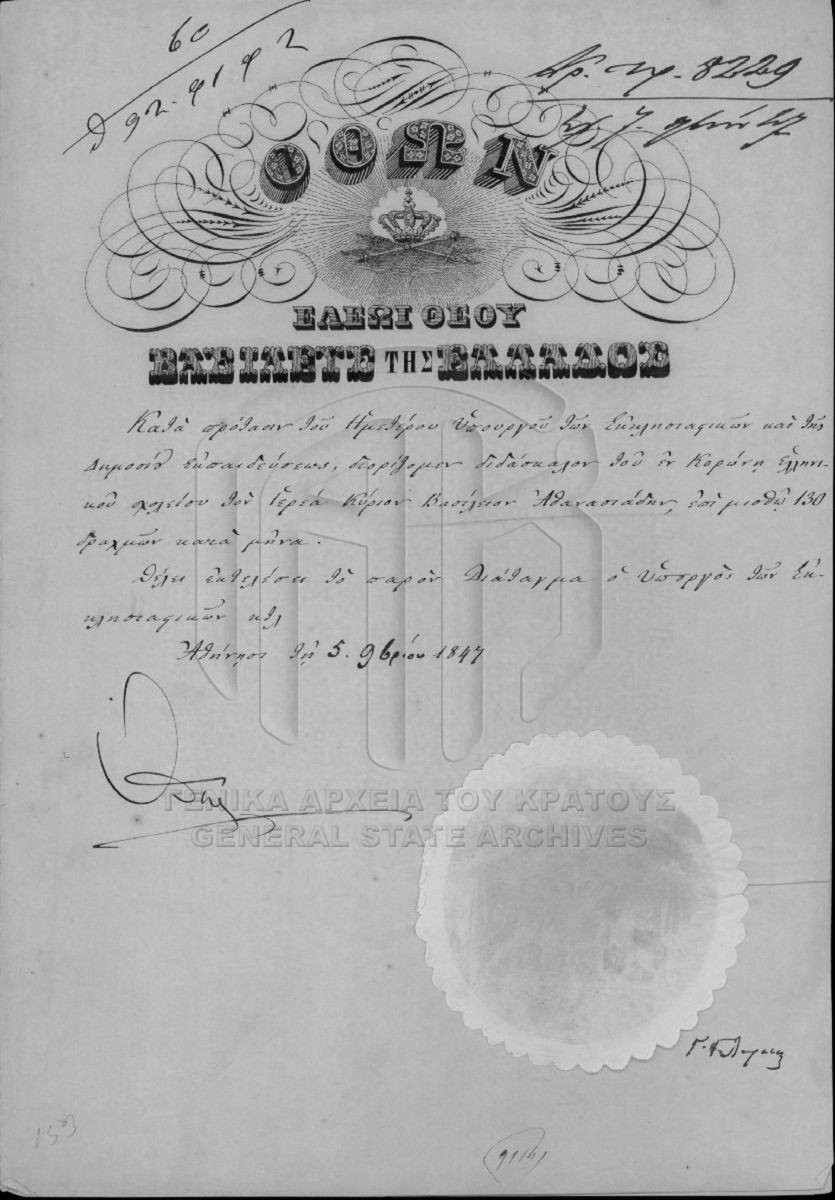 60
Ἀρ. πρ. 8229
ΟΘΩΝ
ΕΛΕΩΙ ΘΕΟΥ
ΒΑΣΙΛΕΥΣ ΤΗΣ ΕΛΛΑΔΟΣ
Κατὰ πρότασιν τοῦ Ἡμετέρου Ὑπουργοῦ τῶν Ἐκκλησιαστικῶν καὶ τῆς
Δημοσίου Ἐκπαιδεύσεως, διορίζομεν διδάσκαλον τοῦ ἐν Κορώνῃ Ἑλληνι-
κοῦ σχολείου τὸν ἱερέα Κύριον Βασίλειον Ἀθανασιάδην, ἐπὶ μισθῷ 130
δραχμῶν κατὰ μῆνα.
Θέλει ἐκτελέσει τὸ παρὸν Διάταγμα ὁ Ὑπουργὸς τῶν Ἐκ-
κλησιαστικῶν κτλ
Ἀθήνησι τῇ 5. 9βρίου 1847
ΓΕΝΙΚΑ ΑΡΧΕΙΑ ΤΟΥ ΚΡΑΤΟΥΣ
GENERAL STATE ARCHIVES